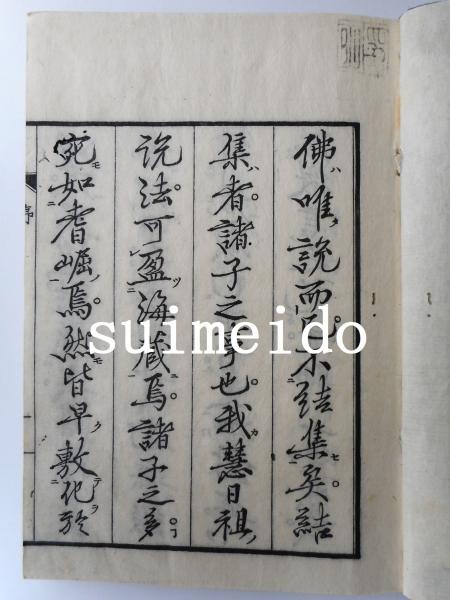 佛唯説而已不結集矣結
集者諸子之事也我慧日祖
説法可盈海藏焉諸子之多
宛如耆崛焉然皆早敷化於
序
suimeido